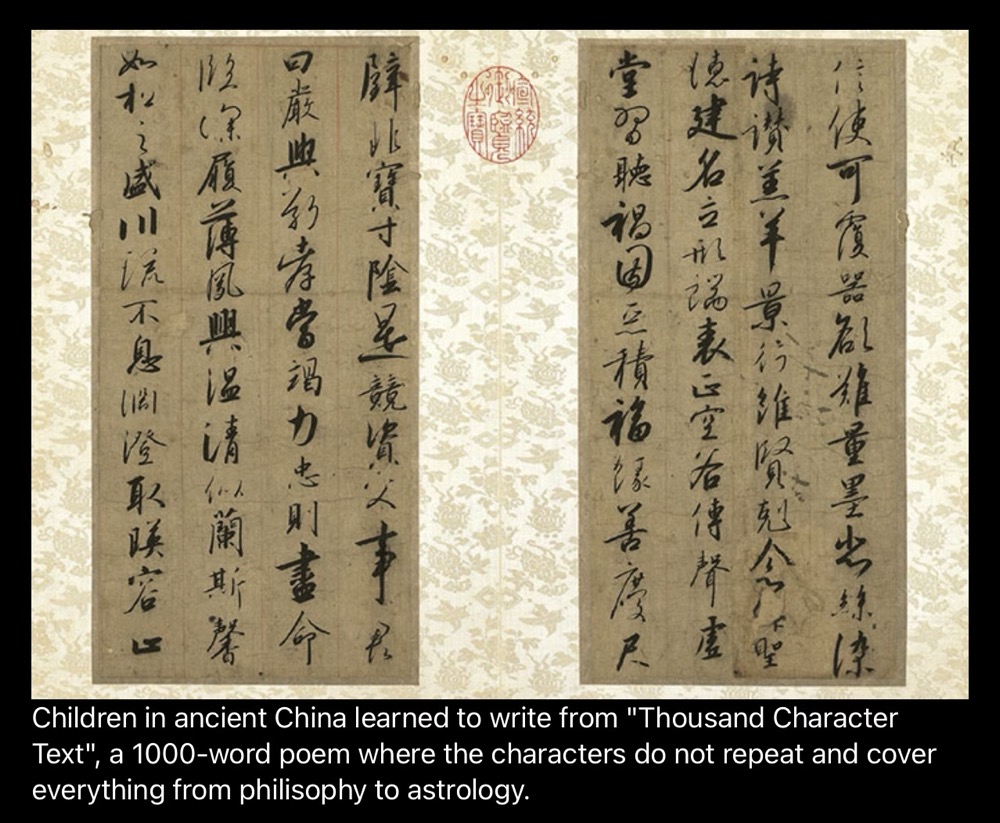 信使可覆器欲難量墨悲絲染
詩讃羔羊景行維賢剋念作聖
德建名立形端表正空谷傳聲虛
堂習聽禍因惡積福緣善慶尺
宣統
御覽
之寶
璧非寶寸陰是競資父事君
曰嚴與敬孝當竭力忠則盡命
臨深履薄夙興溫清似蘭斯馨
如松之盛川流不息淵澄取暎容止
Children in ancient China learned to write from "Thousand Character
Text", a 1000-word poem where the characters do not repeat and cover
everything from philisophy to astrology.